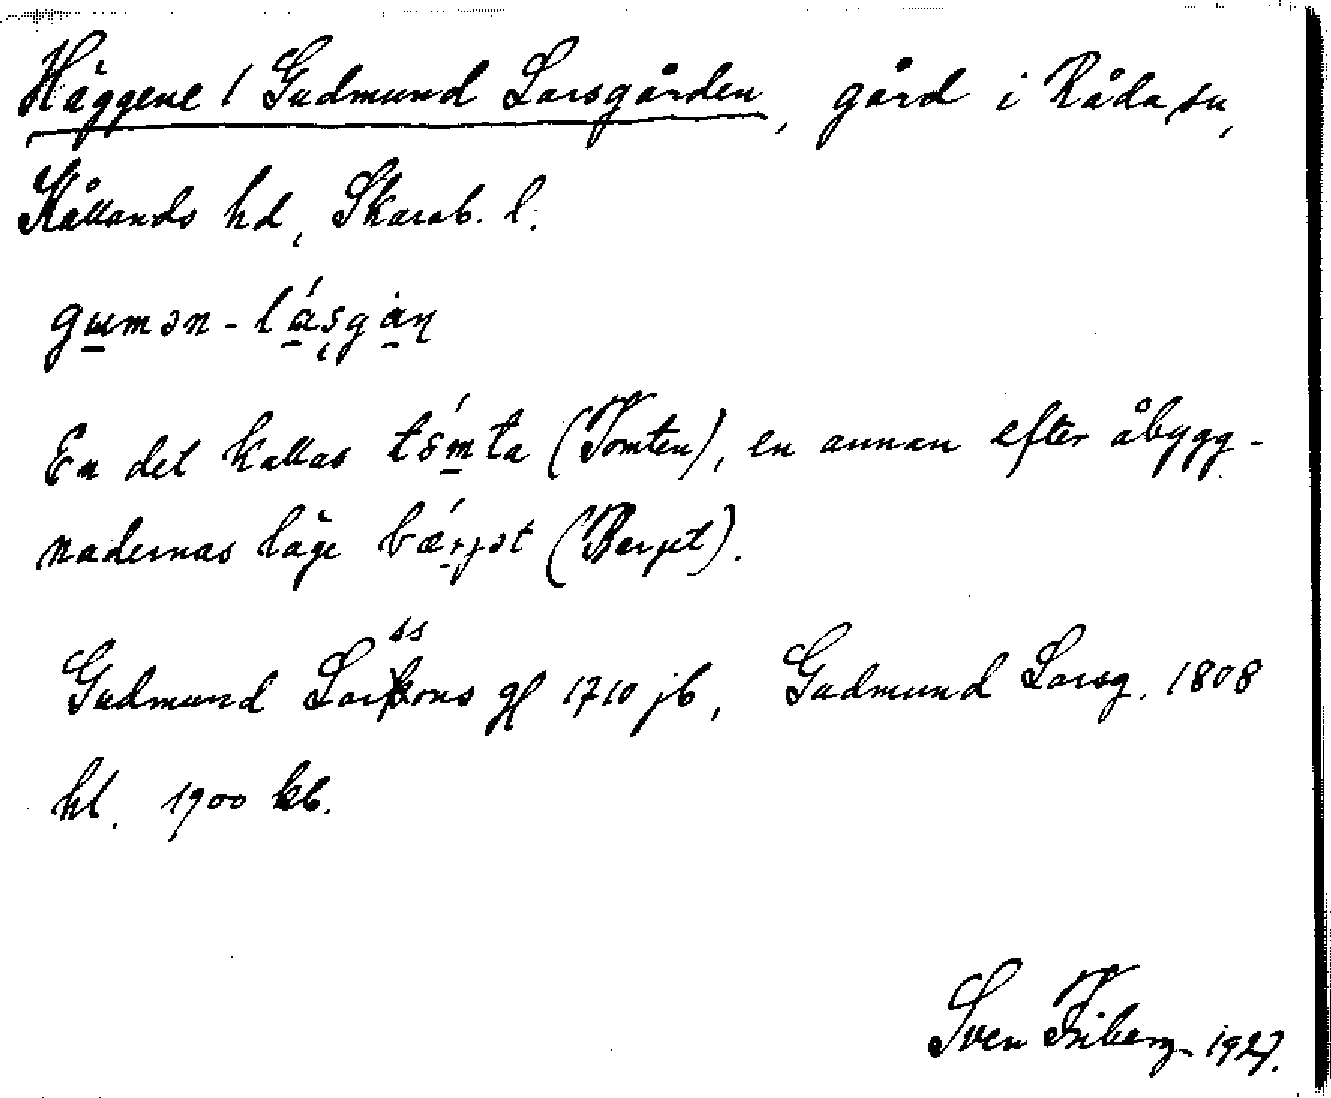 Häggene / Gudmund Larsgården, gård i Råda sn,
Kållands hd, Skarab. l.
gumən - lásgàɳ
En del kallas tómta (Tomten), en annan efter åbygg-
nadernas läge bærjət (Berget).
Gudmund Larssons gd 1710 jb, Gudmund Larsg. 1808
hl. 1900 kb.
Sven Friberg 1927.